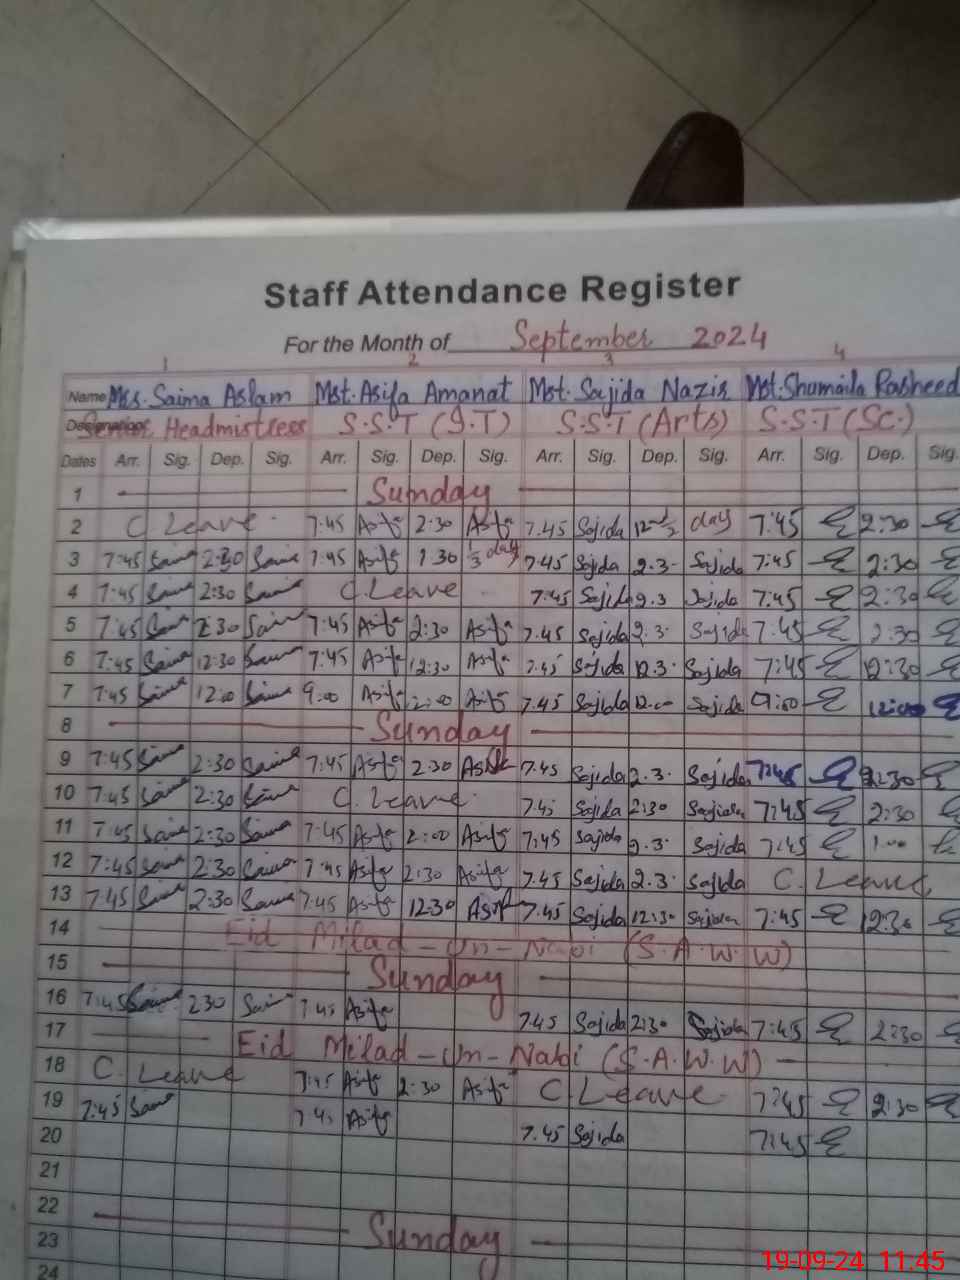 Staff Attendance Register
For the Month of September 2024
1 2 3 4
Name Mrs. Saima Aslam Mst. Asifa Amanat Mst. Sajida Nazir Mst. Shumaila Rasheed
Designation Senior Headmistress S.S.T (I.T) S.S.T (Arts) S.S.T (Sc.)
Dates Arr. Sig. Dep. Sig. Arr. Sig. Dep. Sig. Arr. Sig. Dep. Sig. Arr. Sig. Dep. Sig.
1 Sunday
2 C Leave 7:45 Asifa 2:30 Asifa 7.45 Sajida day 7:45 2:30
3 7:45 Saima 2:30 Saima 7:45 Asifa 1.30 1/3 day 7.45 Sajida 2.3 Sajida 7:45 2:30
4 7:45 Saima 2:30 Saima C Leave 7:45 Sajida 2.3 Sajida 7:45 2:30
5 7:45 Saima 2:30 Saima 7:45 Asifa 2:30 Asifa 7.45 Sajida 2.3. Sajida 7:45 2:30
6 7:45 Saima 12:30 Saima 7:45 Asifa 12:30 Asifa 7.45 Sajida 12.3. Sajida 7:45 12:30
7 7:45 Saima 12:00 Saima 9:00 Asifa 12:00 Asifa 7.45 Sajida 12.00 Sajida 9:00 12:00
8 Sunday
9 7:45 Saima 2:30 Saima 7:45 Asifa 2:30 Asifa 7.45 Sajida 2.3. Sajida 7:45 2:30
10 7:45 Saima 2:30 Saima C. Leave 7:45 Sajida 2:30 Sajida 7:45 2:30
11 7:45 Saima 2:30 Saima 7:45 Asifa 2:00 Asifa 7:45 Sajida 2.3. Sajida 7:45 1.00
12 7:45 Saima 2:30 Saima 7:45 Asifa 2:30 Asifa 7.45 Sajida 2.3. Sajida C. Leave
13 7:45 Saima 2:30 Saima 7:45 Asifa 12:30 Asifa 7.45 Sajida 12:30 Sajida 7:45 12:30
14 Eid Milad-Un-Nabi (S.A.W.W)
15 Sunday
16 7:45 Saima 2:30 Saima 7:45 Asifa 7.45 Sajida 2:30 Sajida 7:45 2:30
17 Eid Milad-Un-Nabi (S.A.W.W)
18 C. Leave 7:45 Asifa 2:30 Asifa C Leave 7:45 2:30
19 7:45 Saima 7:45 Asifa 7.45 Sajida 7:45
20
21
22 Sunday
23
24
19-09-24 11:45